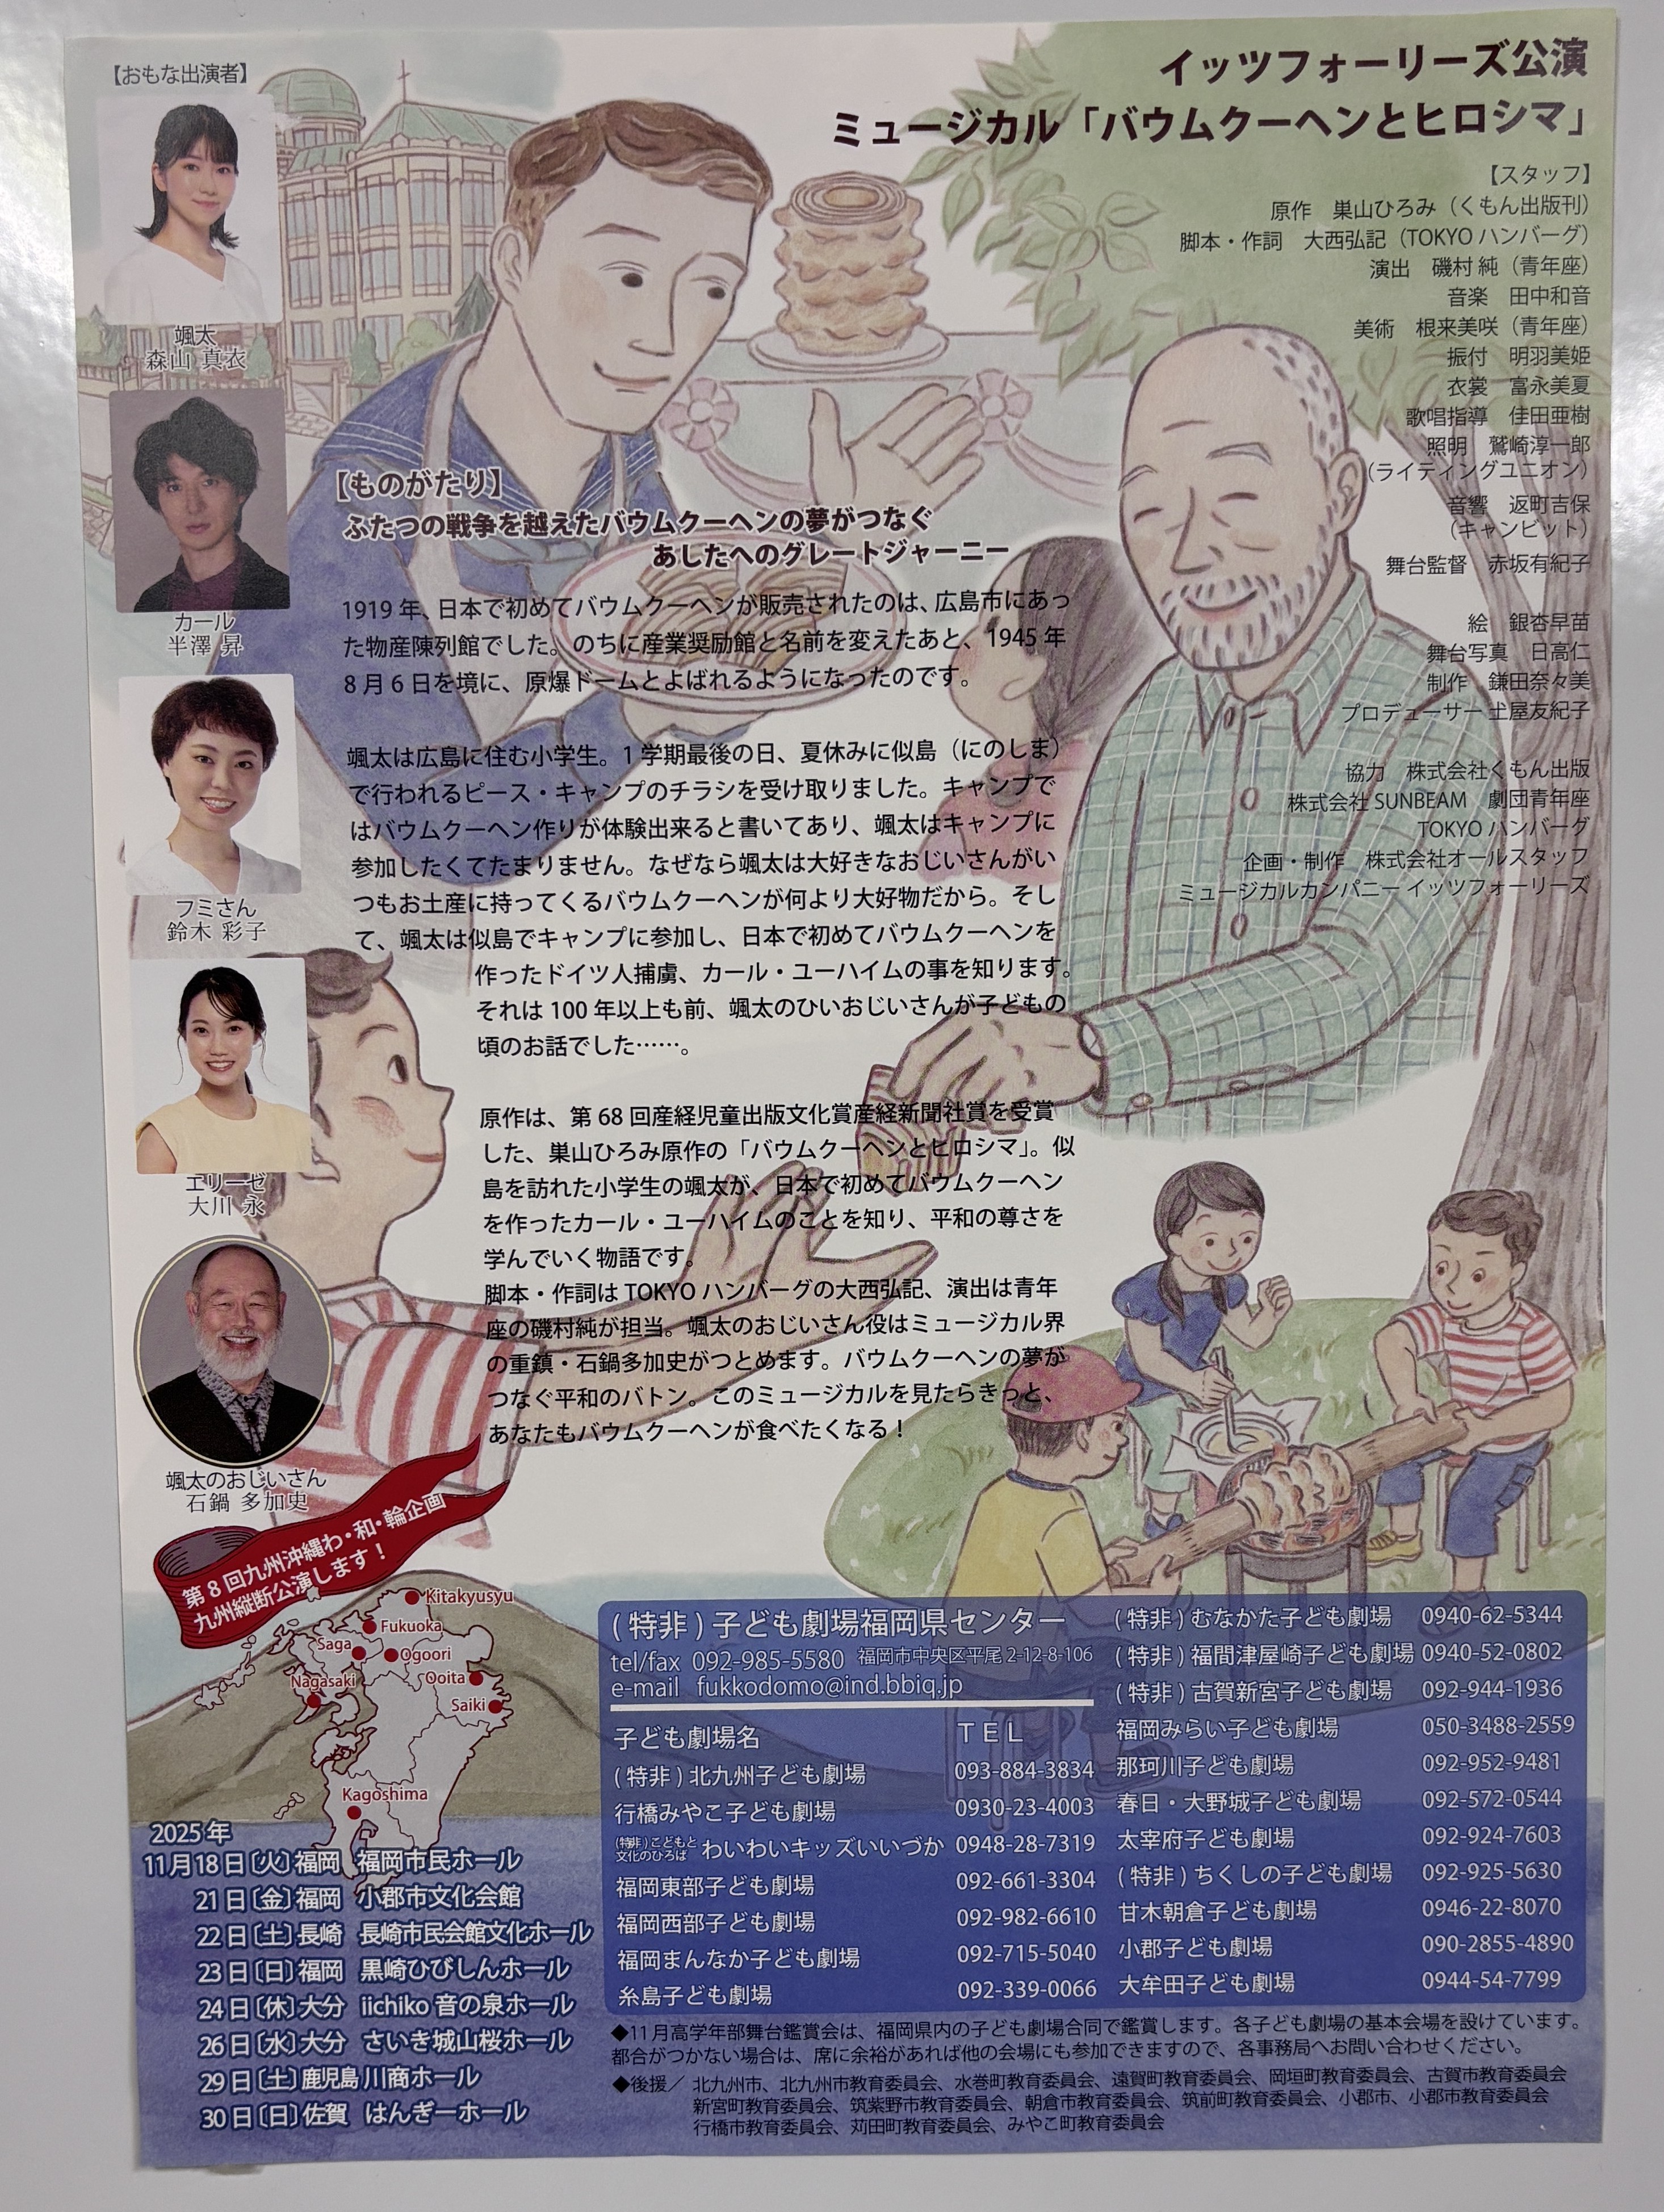 イッツフォーリーズ公演
ミュージカル「バウムクーヘンとヒロシマ」
【おもな出演者】
颯太
森山 真衣
カール
半澤 昇
フミさん
鈴木 彩子
エリーゼ
大川 永
颯太のおじいさん
石鍋 多加史
【スタッフ】
原作 巣山ひろみ（くもん出版刊）
脚本・作詞 大西弘記（TOKYOハンバーグ）
演出 磯村 純（青年座）
音楽 田中和音
美術 根来美咲（青年座）
振付 明羽美姫
衣裳 富永美夏
歌唱指導 佳田亜樹
照明 鷲崎淳一郎
（ライティングユニオン）
音響 返町吉保
（キャンビット）
舞台監督 赤坂有紀子
絵 銀杏早苗
舞台写真 日高仁
制作 鎌田奈々美
プロデューサー 土屋友紀子
協力 株式会社くもん出版
株式会社 SUNBEAM 劇団青年座
TOKYOハンバーグ
企画・制作 株式会社オールスタッフ
ミュージカルカンパニー イッツフォーリーズ
【ものがたり】
ふたつの戦争を越えたバウムクーヘンの夢がつなぐ
あしたへのグレートジャーニー
1919 年、日本で初めてバウムクーヘンが販売されたのは、広島市にあっ
た物産陳列館でした。のちに産業奨励館と名前を変えたあと、1945 年
8 月 6 日を境に、原爆ドームとよばれるようになったのです。
颯太は広島に住む小学生。1 学期最後の日、夏休みに似島（にのしま）
で行われるピース・キャンプのチラシを受け取りました。キャンプで
はバウムクーヘン作りが体験出来ると書いてあり、颯太はキャンプに
参加したくてたまりません。なぜなら颯太は大好きなおじいさんがい
つもお土産に持ってくるバウムクーヘンが何より大好物だから。そし
て、颯太は似島でキャンプに参加し、日本で初めてバウムクーヘンを
作ったドイツ人捕虜、カール・ユーハイムの事を知ります。
それは 100 年以上も前、颯太のひいおじいさんが子どもの
頃のお話でした……。
原作は、第 68 回産経児童出版文化賞産経新聞社賞を受賞
した、巣山ひろみ原作の「バウムクーヘンとヒロシマ」。似
島を訪れた小学生の颯太が、日本で初めてバウムクーヘン
を作ったカール・ユーハイムのことを知り、平和の尊さを
学んでいく物語です。
脚本・作詞は TOKYO ハンバーグの大西弘記、演出は青年
座の磯村純が担当。颯太のおじいさん役はミュージカル界
の重鎮・石鍋多加史がつとめます。バウムクーヘンの夢が
つなぐ平和のバトン。このミュージカルを見たらきっと、
あなたもバウムクーヘンが食べたくなる！
第 8 回九州沖縄わ・和・輪企画
九州縦断公演します！
Kitakyusyu
Fukuoka
Saga
Ogoori
Nagasaki
Ooita
Saiki
Kagoshima
2025 年
11月18 日〔火〕福岡 福岡市民ホール
21 日〔金〕福岡 小郡市文化会館
22 日〔土〕長崎 長崎市民会館文化ホール
23 日〔日〕福岡 黒崎ひびしんホール
24 日〔休〕大分 iichiko 音の泉ホール
26 日〔水〕大分 さいき城山桜ホール
29 日〔土〕鹿児島 川商ホール
30 日〔日〕佐賀 はんぎーホール
(特非)子ども劇場福岡県センター
tel/fax 092-985-5580 福岡市中央区平尾 2-12-8-106
e-mail fukkodomo@ind.bbiq.jp
子ども劇場名 TEL
(特非)北九州子ども劇場 093-884-3834
行橋みやこ子ども劇場 0930-23-4003
(特非)こどもと文化のひろば わいわいキッズいいづか 0948-28-7319
福岡東部子ども劇場 092-661-3304
福岡西部子ども劇場 092-982-6610
福岡まんなか子ども劇場 092-715-5040
糸島子ども劇場 092-339-0066
(特非)むなかた子ども劇場 0940-62-5344
(特非)福間津屋崎子ども劇場 0940-52-0802
(特非)古賀新宮子ども劇場 092-944-1936
福岡みらい子ども劇場 050-3488-2559
那珂川子ども劇場 092-952-9481
春日・大野城子ども劇場 092-572-0544
太宰府子ども劇場 092-924-7603
(特非)ちくしの子ども劇場 092-925-5630
甘木朝倉子ども劇場 0946-22-8070
小郡子ども劇場 090-2855-4890
大牟田子ども劇場 0944-54-7799
◆11月高学年部舞台鑑賞会は、福岡県内の子ども劇場合同で鑑賞します。各子ども劇場の基本会場を設けています。
都合がつかない場合は、席に余裕があれば他の会場にも参加できますので、各事務局へお問い合わせください。
◆後援／ 北九州市、北九州市教育委員会、水巻町教育委員会、遠賀町教育委員会、岡垣町教育委員会、古賀市教育委員会
新宮町教育委員会、筑紫野市教育委員会、朝倉市教育委員会、筑前町教育委員会、小郡市、小郡市教育委員会
行橋市教育委員会、苅田町教育委員会、みやこ町教育委員会